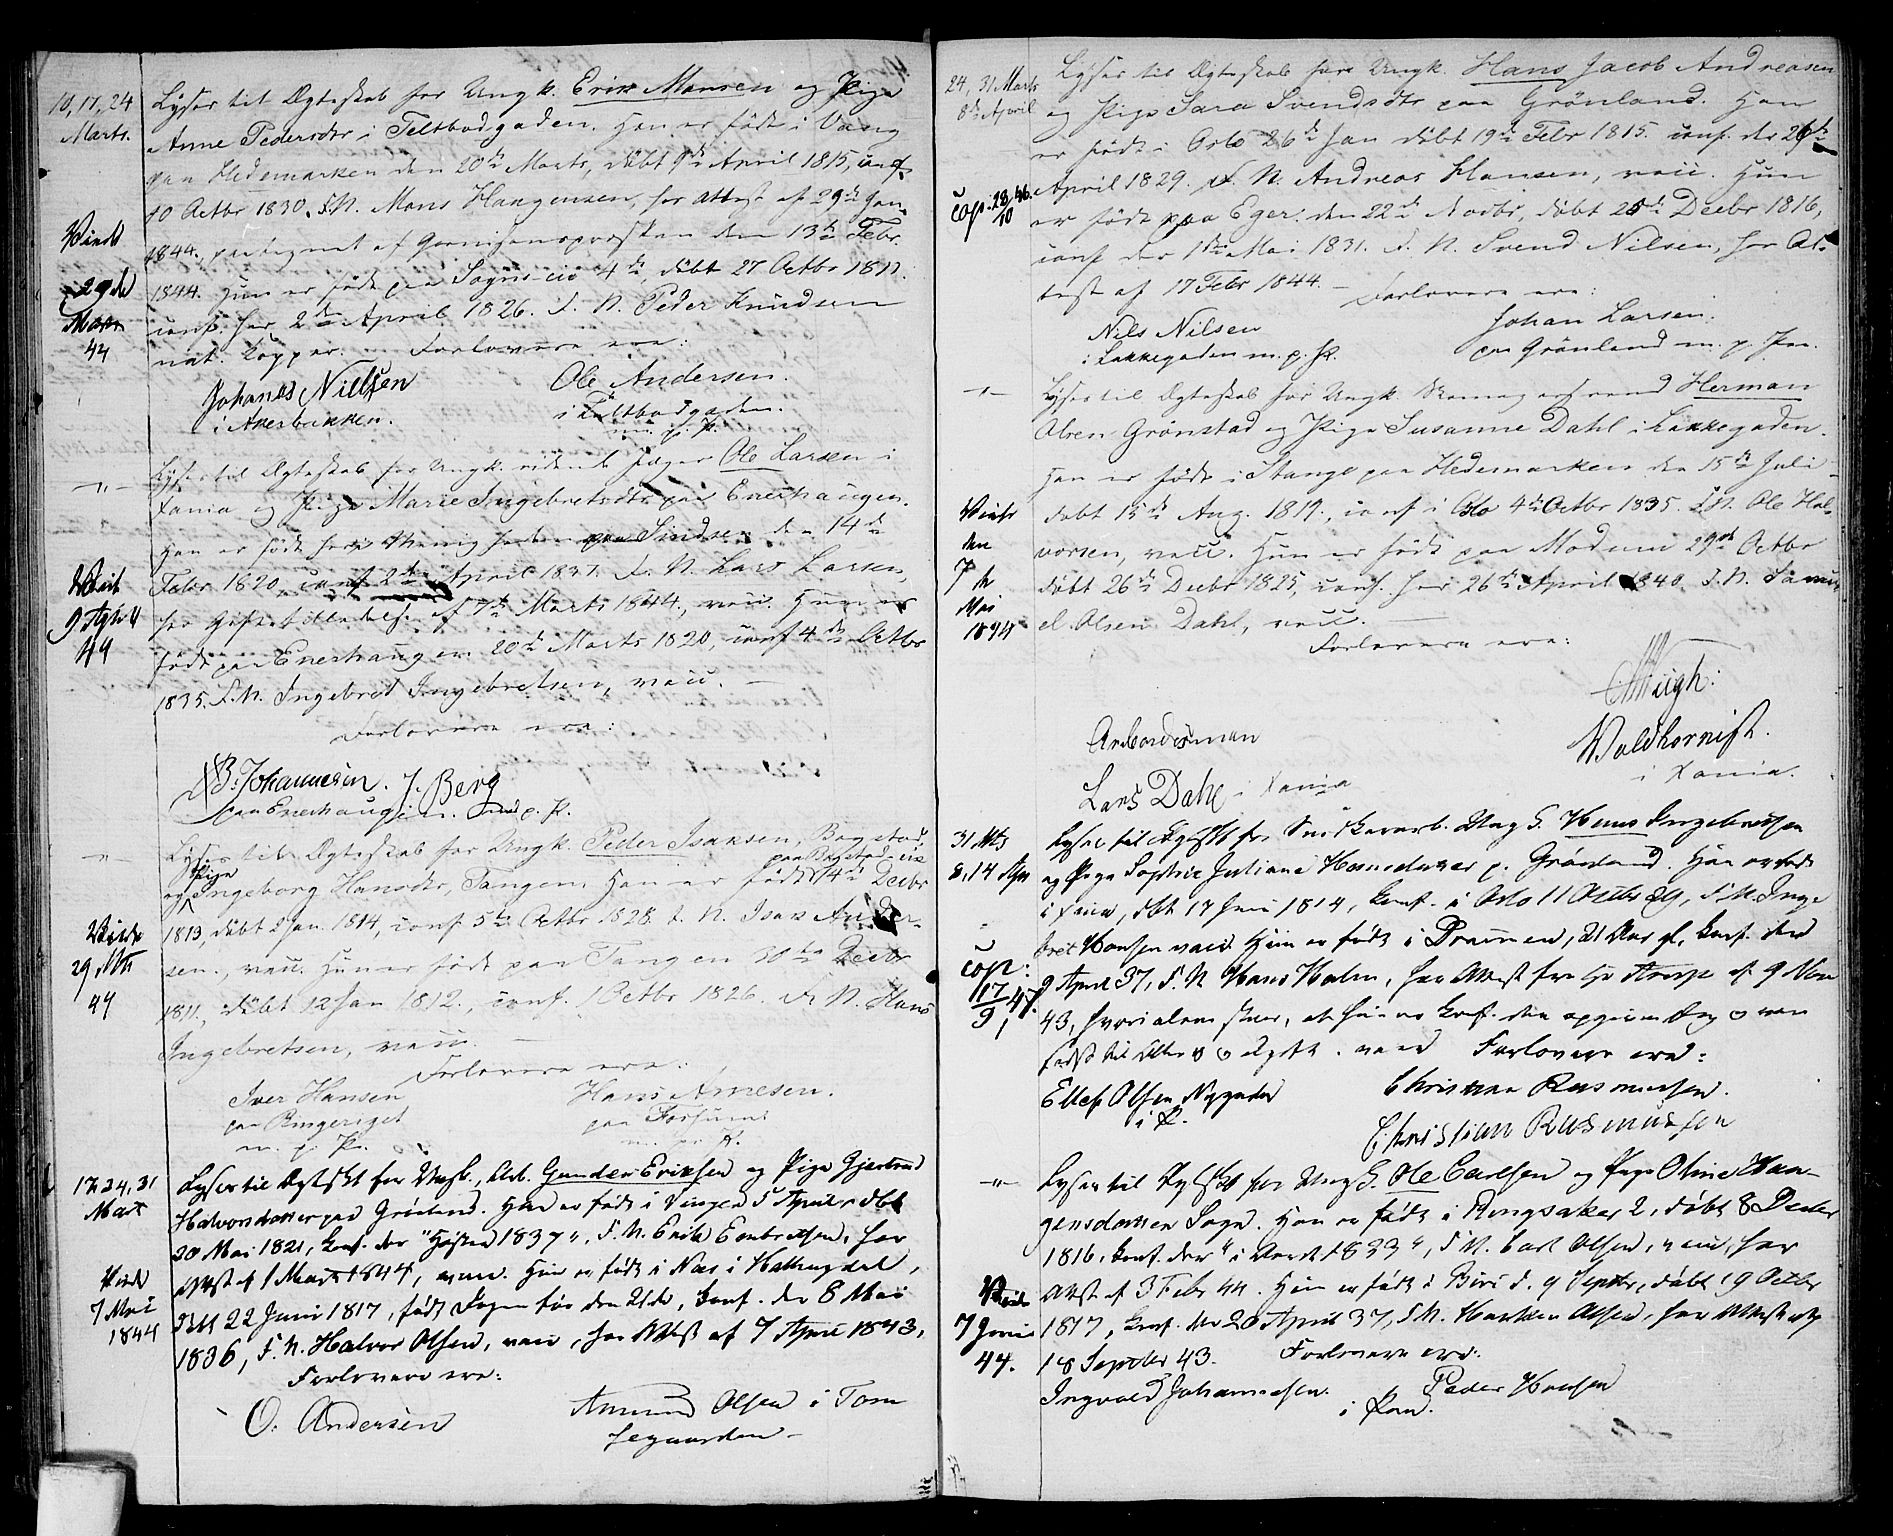 10, 17, 24
Marts.
Lyser til Ægteskab for Ungk. Erik Monsen og Pige
Anne Pedersdtr i Teltbodgaden. Han er født i Vang
paa Hedemarken den 20de Marts, döbt 9de April 1815, conf.
10 Octbr 1830, F. N. Mons Haagensen, har Attest af 29de Jan.
1844. paategnet af Garnisonspræsten den 13de Febr.
1844. Hun er født paa Sogne 4de, döbt 27 Octbr 1811.
conf. her 2den April 1826. F. N. Peder Knudsen
nat. Kopper. Forlovere ere:
Viede
29de
Marts
44
Johanes Nielsen
i Akersbakken.
Ole Andersen.
i Teltbodgaden.
m. p. P.
Lyser til Ægteskab for Ungk. ridende Jæger Ole Larsen i
Xania og Pige Marie Ingebretsdtr paa Enerhaugen.
Han er født her i den 14de
Febr 1820, conf 2den April 1837. F. N. Lars Larsen,
har Giftetilladelse af 7de Marts 1844, vacc. Hun er
født paa Enerhaugen 20de Marts 1820, conf 4de Octbr
1835. F. N. Ingebret Ingebretsen, vacc.
Forlovere ere:
Viet
9 April
44
B. Johannesen. J. Berg
paa Enerhaugen. m. p. P.
Lyser til Ægteskab for Ungk. Peder Isaksen, Bogstad
og Pige Ingeborg Hansdtr, Tangen. Han er født paa Bogstad 14de Decbr
1813, döbt 2 Jan. 1814, conf 5te Octbr 1828. F. N. Isak Ander-
sen, vacc. Hun er født paa Tangen 20de Decbr
1811, döbt 12 Jan 1812, conf. 1 Octbr 1826. F. N. Hans
Ingebretsen, vacc.
Forlovere ere:
Viede
29 Mts
44
Iver Hansen
paa Ringeriget
m. p. P.
Hans Arnesen.
paa Fossum
m. p. P.
17. 24, 31
Marts
Lyses til Ægtesk for Ungk., Arb. Gunder Eriksen og Pige Gjertrud
Halvorsdatter paa Grönland. Han er født i Vinger 5 April, döbt
20 Mai 1821, conf. der "Høsten 1837", F. N. Erik Embretsen, har
Attest af 1 Marts 1844, vacc. Hun er født i Næs i Hallingdal,
döbt 22 Juni 1817, født Dagen før den 21de, Konf. der 8 Mai
1836, F. N. Halvor Olsen, vacc, har Attst af 7 April 1843.
Forlovere ere:
Viede
7 Mai
1844
O. Andersen
Amund Olsen i Tom
tegaarden
24, 31 Marts
8de April
Lyser til Ægteskab for Ungk. Hans Jacob Andreasen
og Pige Sara Svendsdtr paa Grønland. Han
er født i Oslo 26de Jan döbt 19de Febr 1815. conf. der 26de
April 1829. F. N. Andreas Hansen, vacc. Hun
er født paa Eger. den 22de Novbr, döbt 25de Decbr 1816,
conf der 1ste Mai 1831. F. N. Svend Nilsen, har At-
test af 17 Febr 1844. Forlovere ere:
Cop. 28/10 46.
Nils Nilsen
i Lakkegaden m. p. P.
Johan Larsen.
paa Grönland m. p. Pen.
Lyser til Ægteskab for Ungk. Herman
Olsen Grönstad og Pige Susanne Dahl i Lakkegaden.
Han er født i Stange paa Hedemarken den 15de Juli
döbt 15de Aug. 1819, conf i Oslo 4de Octbr 1835. F. N. Ole Hal-
vorsen, vacc. Hun er født paa Modum 29de Octbr
döbt 26de Decbr 1825, conf. her 26de April 1840. F. N. Samu-
el Olsen Dahl, vacc.
Forlovere ere:
Viede
den
7de
Mai
1844
Waldhornist.
i Xania.
Arbeidsman
Lars Dahl i Xania
31 Mts
8, 14 Apr
Lyses til Ægtesk for Snedkerarb. Ungk. Hans Ingebretsen
og Pige Sophie Juliane Hansdatter p. Grönland. Han er født
i Xania, dbt 17 Juni 1814, Konf. i Oslo 11 Octbr 29, F. N. Inge
bret Hansen vacc Hun er født i Drammen, 21 Aar gl, Konf. den
9 April 37, F. N. Hans Holm, har Attest fra af 9 Nov
43, hvori at hun er Konf. den opgivne Dag
født til Alter vacc Forlovere ere:
Cop:
17/9 47.
Ellef Olsen Nygaden
i P.
Christian Rasmussen.
Christian Rasmussen
Lyses til Ægtesk for Ungk. Ole Carlsen og Pige Oline Haa-
gensdatter Sogn. Han er født i Ringsaker 2, döbt 8 Decbr
1816, Konf. der "i Aaret 1833", F. N. Carl Olsen, vacc, har
Attst af 3 Febr 44. Hun er født i Biri d. 9 Septbr, döbt 19 Octbr
1817, Konf. der 20 April 37, F. N. Haaken Olsen, har Attest af
18 Septbr 43. Forlovere ere:
Viede
7 Juni
44.
Ingvold Johannesen.
Peder Hansen
i Pen.